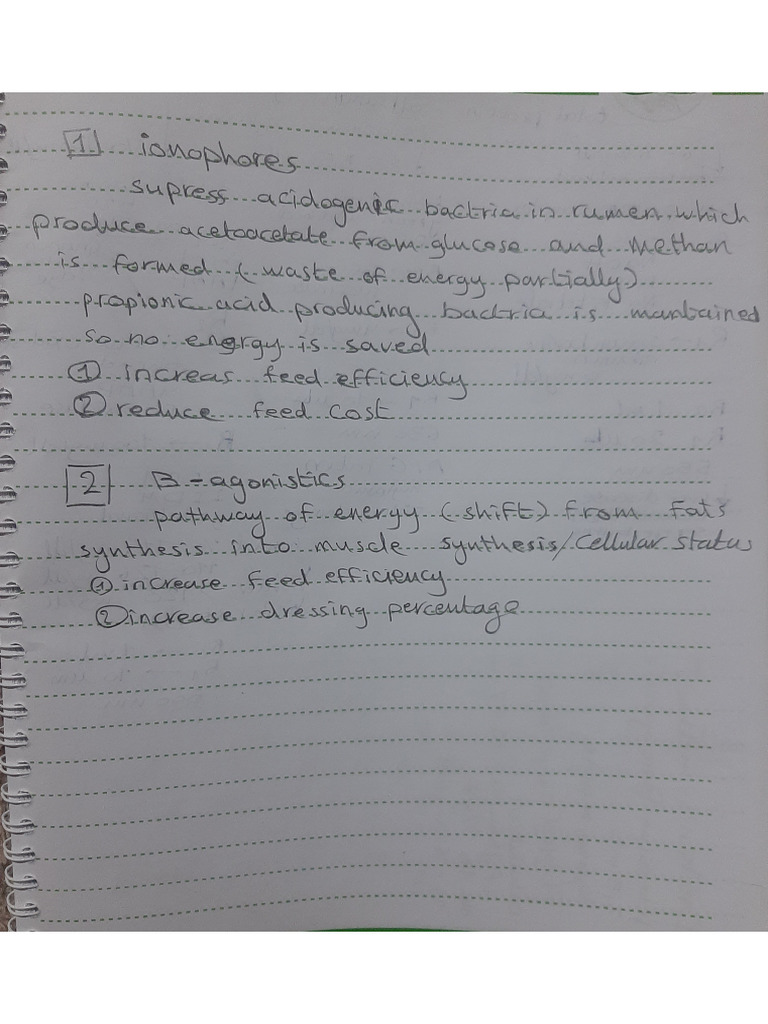 1 ionophores
supress acidogenic bactria in rumen which
produce acetoacetate from glucose and methan
is formed (waste of energy partially)
propionic acid producing bactria is mantained
so no energy is saved
① increas feed efficiency
② reduce feed cost
2 B-agonistics
pathway of energy (shift) from fats
synthesis into muscle synthesis/cellular status
① increase feed efficiency
② increase dressing percentage